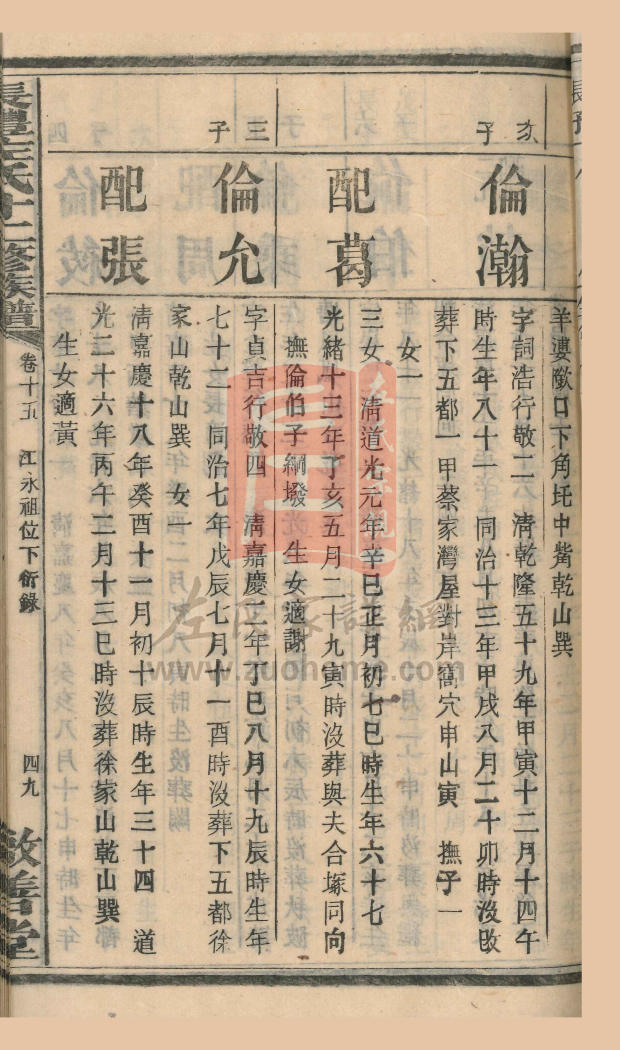 羊婆𭮱口下角圫中觜乾山巽
次子
倫瀚
字詞浩行敬二　清乾隆五十九年甲寅十二月十四午
時生年八十一　同治十三年甲戌八月二十卯時沒改
葬下五都一甲蔡家灣屋對岸窩穴申山寅　撫子一
女一
配葛
三女　清道光元年辛巳正月初七巳時生年六十七
光緒十三年丁亥五月二十九寅時沒葬與夫合塚同向
撫倫伯子綱墢　生女適謝
三子
倫允
字貞吉行敬四　清嘉慶二年丁巳八月十九辰時生年
七十二　同治七年戊辰七月十一酉時沒葬下五都徐
家山乾山巽　女一
配張
清嘉慶十八年癸酉十一月初十辰時生年三十四　道
光二十六年丙午三月十三巳時沒葬徐家山乾山巽
生女適黃
長澧左氏十二修族譜
卷十五
江永祖位下衍錄
四九
敬善堂
左氏家譜網
www.zuohome.com